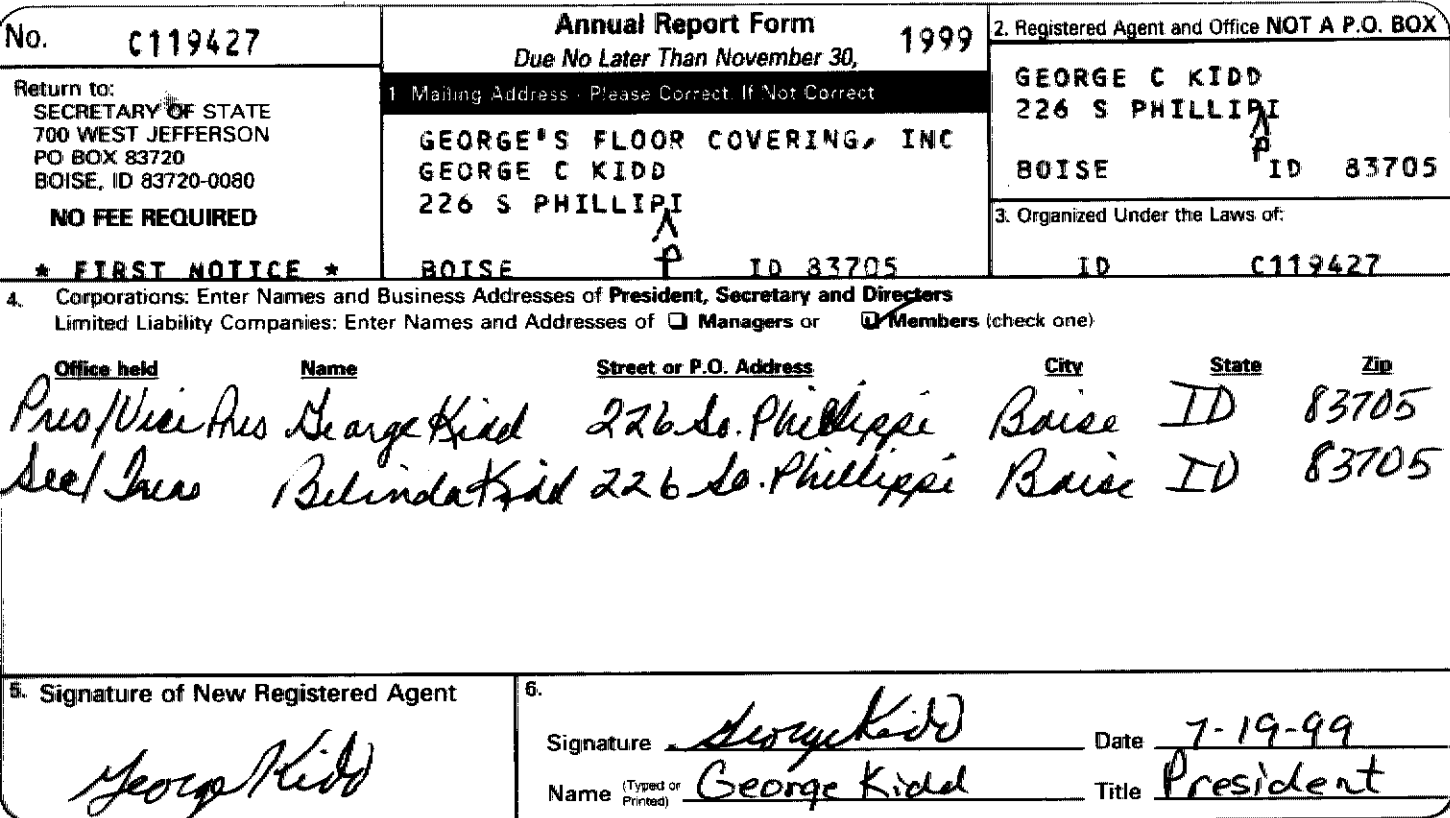 No. C119427
Return to:
SECRETARY OF STATE
700 WEST JEFFERSON
PO BOX 83720
BOISE, ID 83720-0080
NO FEE REQUIRED
* FIRST NOTICE *
Annual Report Form 1999
Due No Later Than November 30,
1 Mailing Address - Please Correct, If Not Correct
GEORGE'S FLOOR COVERING, INC
GEORGE C KIDD
226 S PHILLIPI
P
BOISE ID 83705
2. Registered Agent and Office NOT A P.O. BOX
GEORGE C KIDD
226 S PHILLIPI
P
BOISE ID 83705
3. Organized Under the Laws of:
ID C119427
4. Corporations: Enter Names and Business Addresses of President, Secretary and Directors
Limited Liability Companies: Enter Names and Addresses of Managers or Members (check one)
Office held Name Street or P.O. Address City State Zip
Pres/Vice Pres George Kidd 226 So. Phillippi Boise ID 83705
Sec/Treas Belinda Kidd 226 So. Phillippi Boise ID 83705
5. Signature of New Registered Agent
George Kidd
6.
Signature George Kidd Date 7-19-99
Name (Typed or Printed) George Kidd Title President